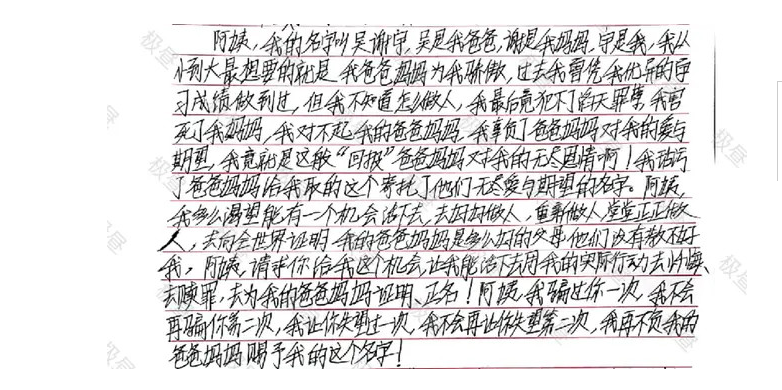 阿姨，我的名字叫吴谢宇，吴是我爸爸，谢是我妈妈，宇是我，我从
小到大最想要的就是我爸爸妈妈为我骄傲，过去我曾凭我优异的学
习成绩做到过，但我不知道怎么做人，我最后竟犯下了滔天罪孽，我害
死了我妈妈，我对不起我的爸爸妈妈，我辜负了爸爸妈妈对我的爱与
期望，我竟就是这般“回报”爸爸妈妈对我的无尽恩情啊！我玷污
了爸爸妈妈给我取的这个寄托了他们无尽爱与期望的名字。阿姨，
我多么渴望能有一个机会活下去，去好好做人，重新做人，堂堂正正做
人，去向全世界证明我的爸爸妈妈是多么好的父母，他们没有教不好
我，阿姨，请求你给我这个机会，让我能活下去用我的实际行动去忏悔、
去赎罪，去为我的爸爸妈妈证明、正名！阿姨，我骗过你一次，我不会
再骗你第二次，我让你失望过一次，我不会再让你失望第二次，我再不负我的
爸爸妈妈赐予我的这个名字！
极昼
极昼
极昼
极昼
极昼
极昼